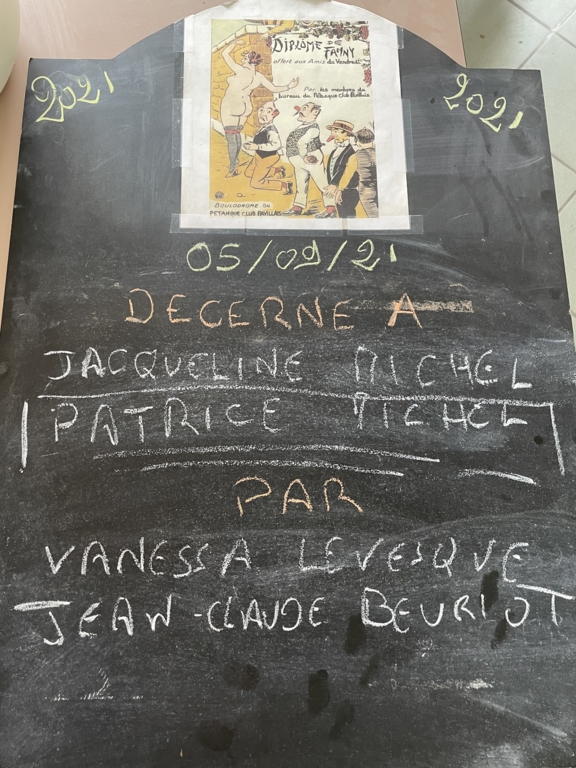 2021
2021
DIPLOME DE FANNY
offert aux Amis du Vendredi
Par les membres du
bureau du Pétanque Club Pavillais
BOULODROME DU
PETANQUE CLUB PAVILLAIS
05/09/21
DECERNE A
JACQUELINE MICHEL
PATRICE MICHEL
PAR
VANESSA LEVESQUE
JEAN-CLAUDE BEURIOT